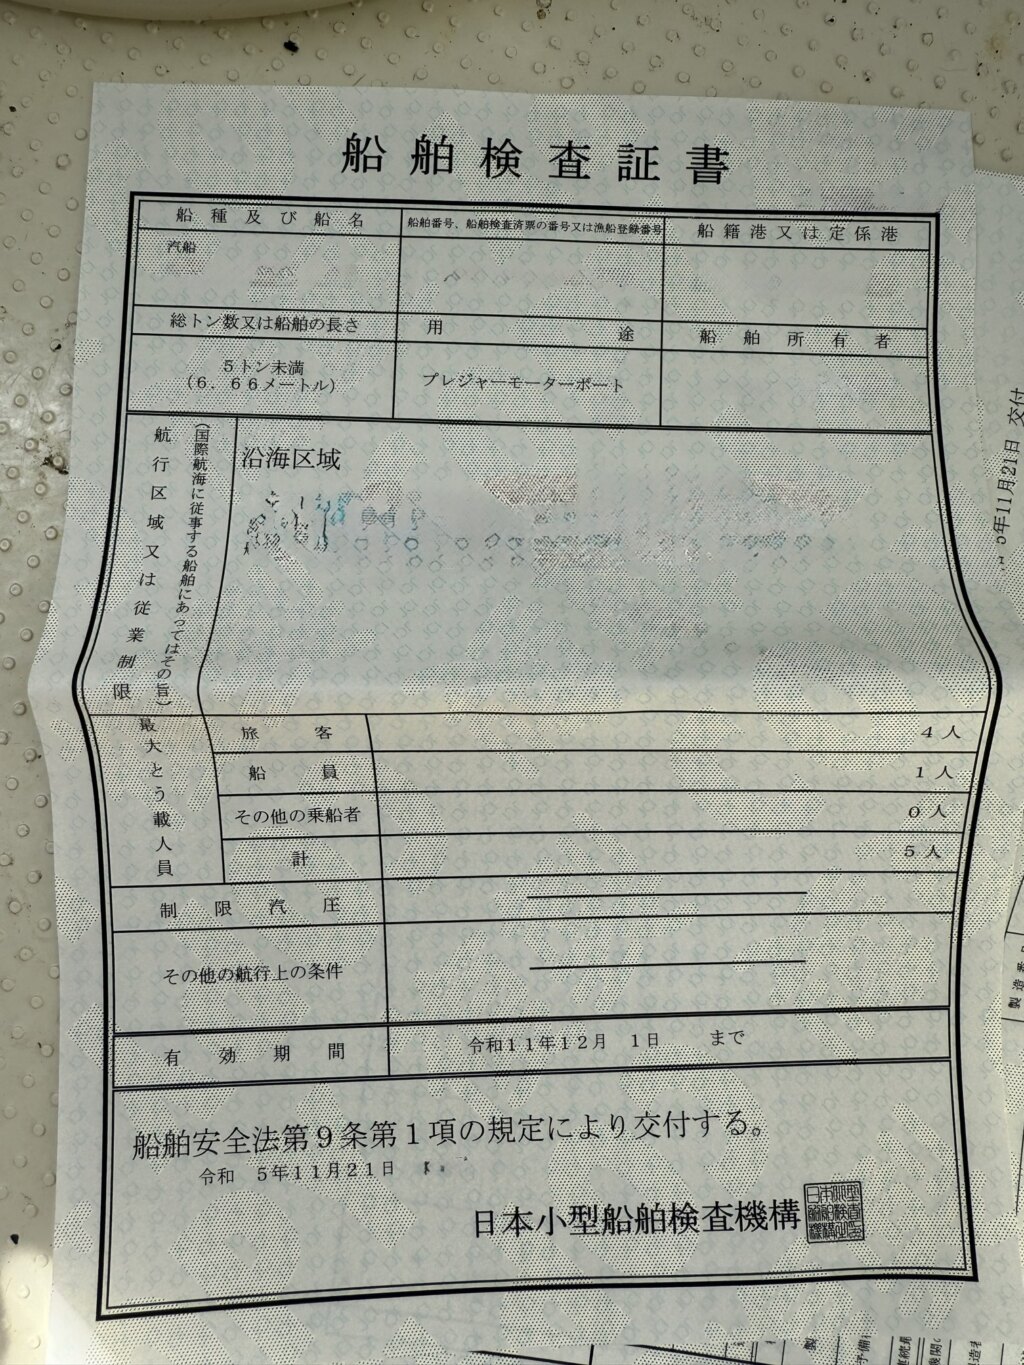 船舶検査証書
船種及び船名
船舶番号、船舶検査済票の番号又は漁船登録番号
船籍港又は定係港
汽船
総トン数又は船舶の長さ
用途
船舶所有者
5トン未満
(6.66メートル)
プレジャーモーターボート
航行区域又は従業制限
(国際航海に従事する船舶にあってはその旨)
沿海区域
最大とう載人員
旅客 4人
船員 1人
その他の乗船者 0人
計 5人
制限汽圧
その他の航行上の条件
有効期間 令和11年12月 1日 まで
船舶安全法第9条第1項の規定により交付する。
令和 5年11月21日
日本小型船舶検査機構
5年11月21日 交付
製造番